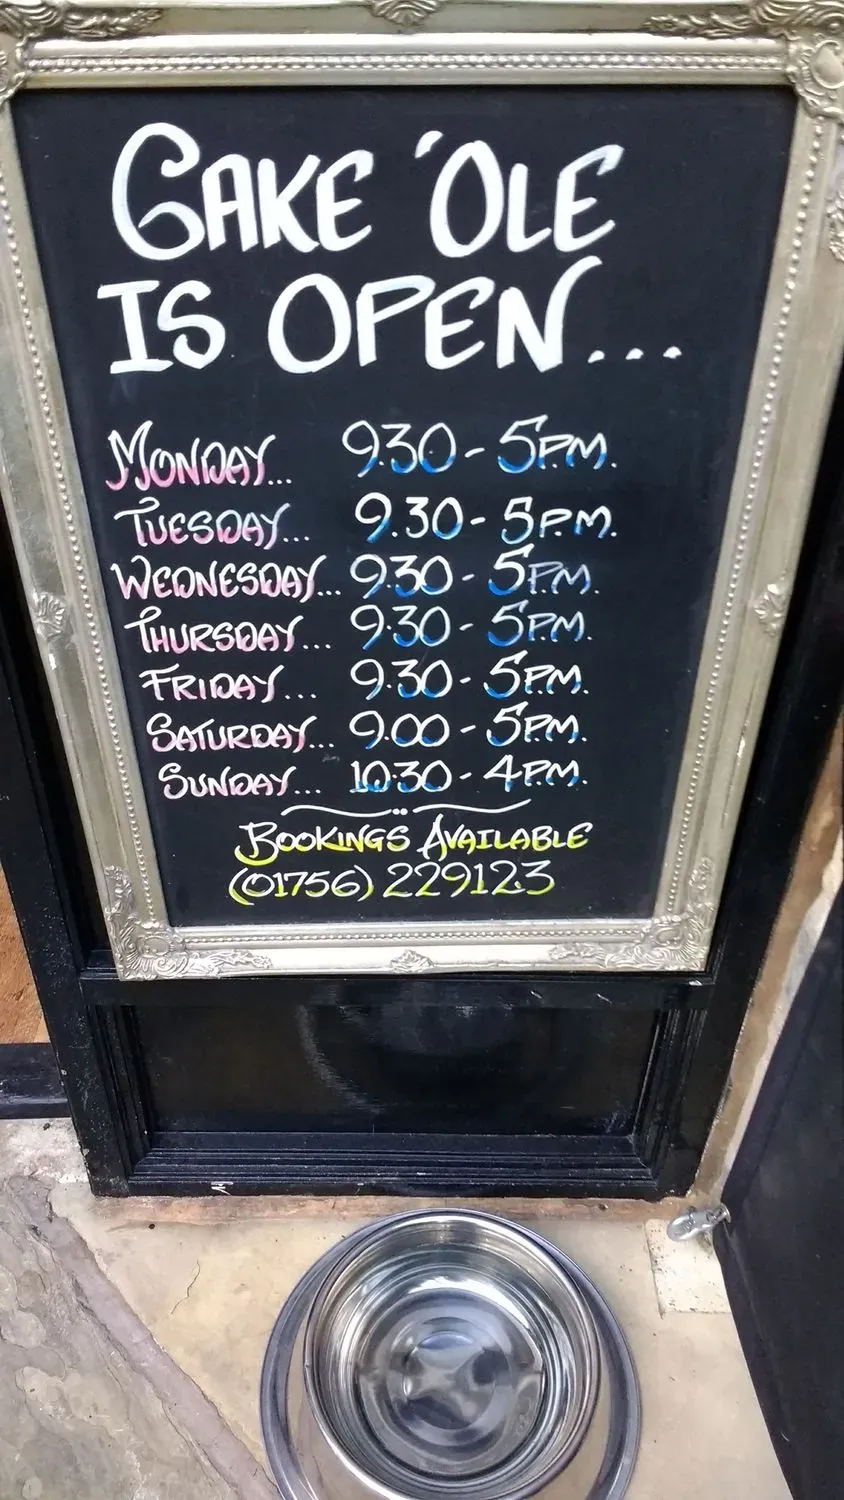 CAKE 'OLE
IS OPEN...
MONDAY... 9.30 - 5P.M.
TUESDAY... 9.30 - 5P.M.
WEDNESDAY... 9.30 - 5P.M.
THURSDAY... 9.30 - 5P.M.
FRIDAY... 9.30 - 5P.M.
SATURDAY... 9.00 - 5P.M.
SUNDAY... 10.30 - 4P.M.
BOOKINGS AVAILABLE
(01756) 229123